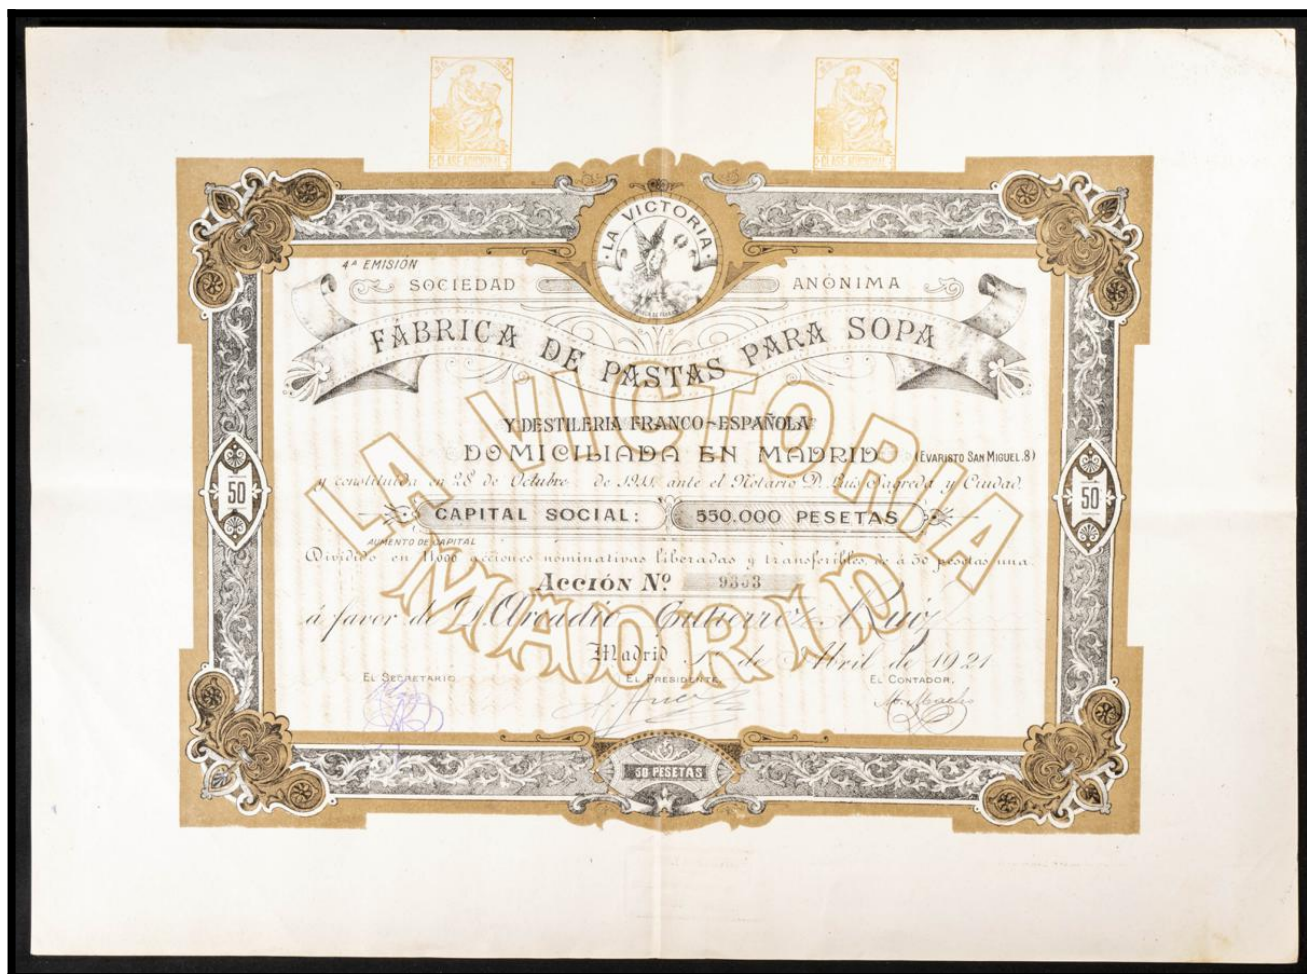 CLASE ADICIONAL
CLASE ADICIONAL
·LA VICTORIA·
4ª EMISIÓN
SOCIEDAD ANÓNIMA
FÁBRICA DE PASTAS PARA SOPA
Y DESTILERIA FRANCO-ESPAÑOLA
DOMICILIADA EN MADRID (EVARISTO SAN MIGUEL.8)
y constituida en 28 de Octubre de 1911, ante el Notario D. Luis Sagreda y Ciudad.
50
50
CAPITAL SOCIAL: 550.000 PESETAS
AUMENTO DE CAPITAL
Dividido en 11000 acciones nominativas liberadas y transferibles, de a 50 pesetas una.
ACCIÓN Nº 9353
á favor de D. Arcadio Gutierrez Ruiz
Madrid 1º de Abril de 1921
EL SECRETARIO EL PRESIDENTE, EL CONTADOR,
LA VICTORIA
MADRID
50 PESETAS